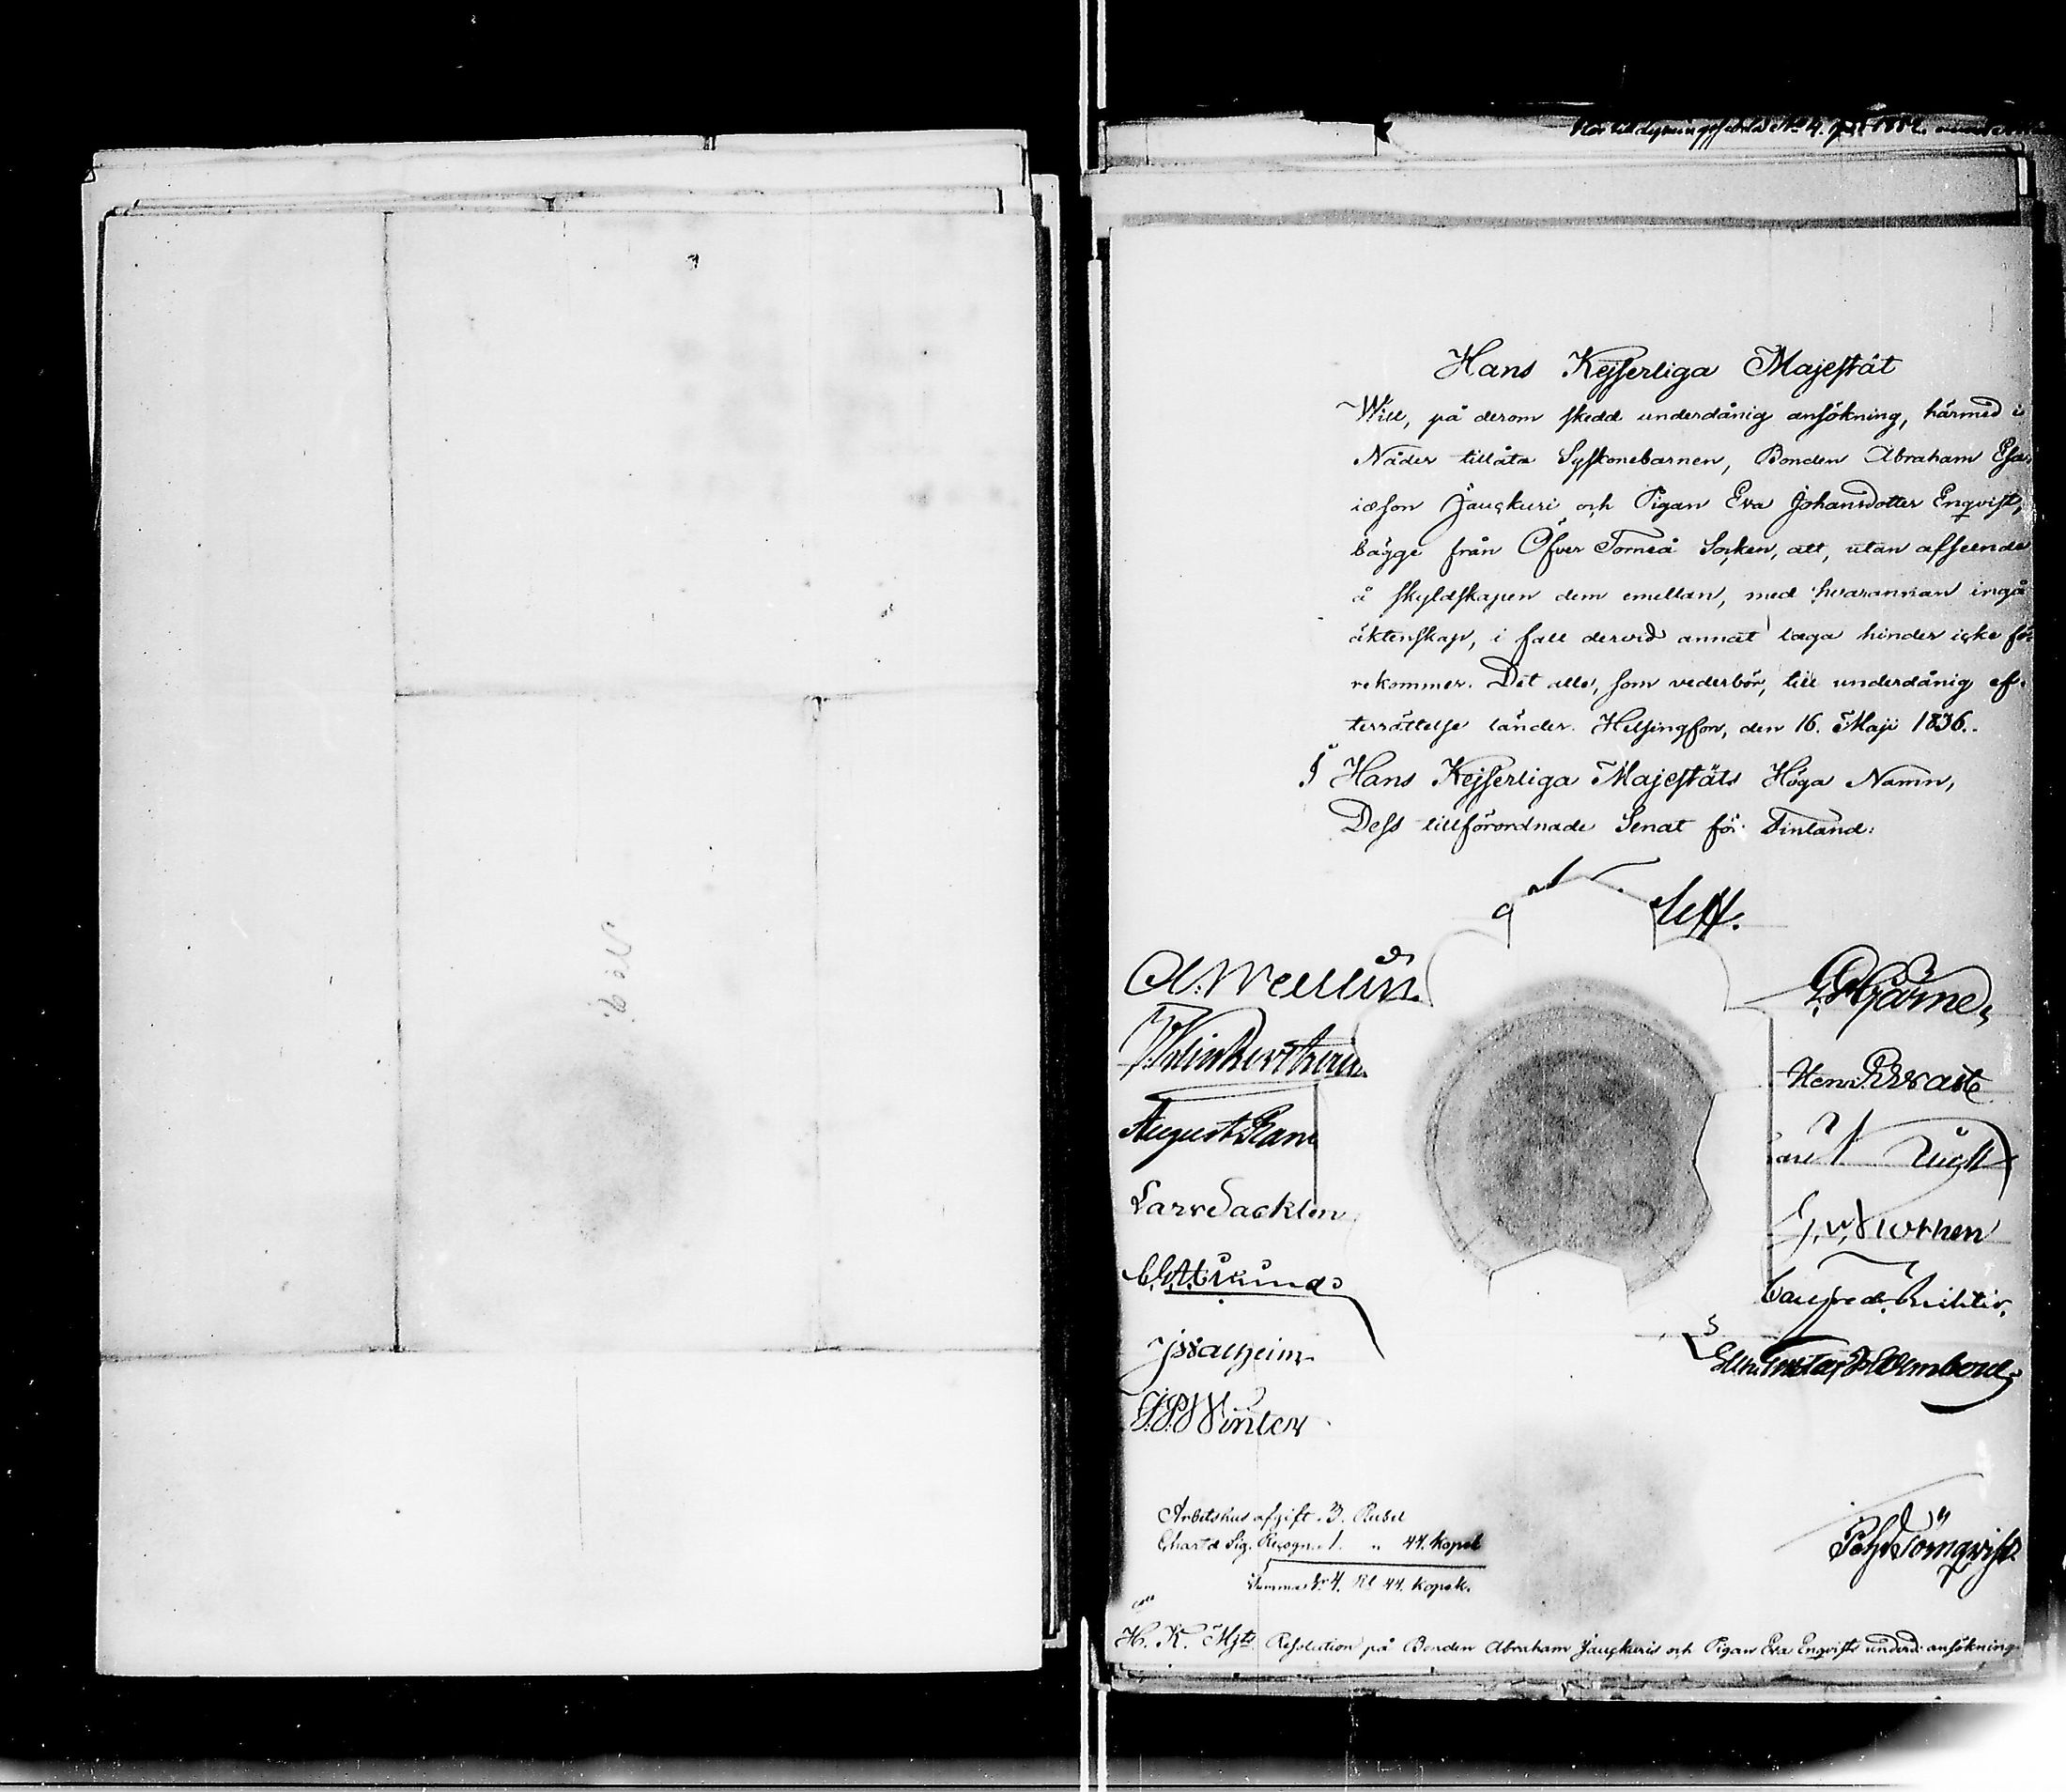 No 9.
Hans Kejserliga Majestät
Will, på derom skedd underdånig ansökning, härmed i
Nåder tillåta Syskonebarnen, Bonden Abraham Esa-
iæson Jauçkuri och Pigan Eva Johansdotter Enqvist,
bägge från Öfver Torneå Soçken, att, utan afseende
å skyldskapen dem emellan, med hvarannan ingå
äktenskap, i fall dervid annat laga hinder içke fö-
rekommer. Det alle, som vederbör, till underdånig ef-
terrättelse länder. Helsingfors, den 16. Maji 1836.
I Hans Kejserliga Majestäts Höga Namn,
Dess tillförordnade Senat för Finland:
A. Mellin
G. Hjärne
August Ramsay
Lars Sacklén
J. Walheim
G. P. Winter
Pehr Törnqvist
Arbetshus afgift. 3. Rubel
Charta Sig. Reçogn. 1. " 44. kopek
Summa Sr 4. Rl 44. kopek.
H. K. Mjts Resolution på Bonden Abraham Jauçkuris och Pigan Eva Enqvists underd: ansökning